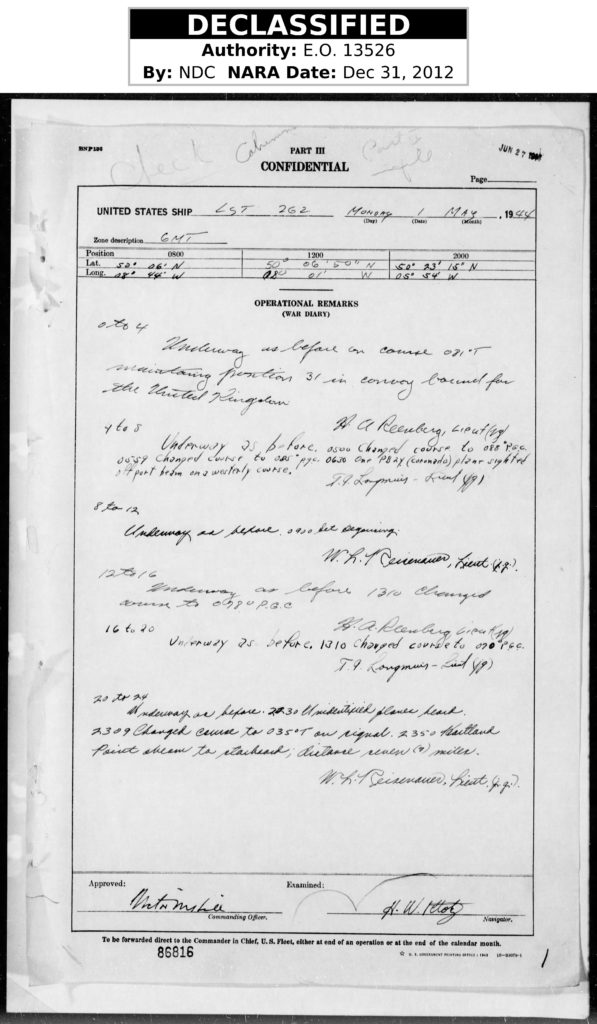 DECLASSIFIED
Authority: E.O. 13526
By: NDC NARA Date: Dec 31, 2012
JUN 27 1944
BNP136
Check
PART III
CONFIDENTIAL
Page
UNITED STATES SHIP LST 262 MONDAY 1 MAY, 1944
(Day) (Date) (Month)
Zone description GMT
Position 0800 1200 2000
Lat. 50° 06' N 50° 06' 50" N 50° 23' 15" N
Long. 08° 44' W 08° 01' W 05° 54' W
OPERATIONAL REMARKS
(WAR DIARY)
0 to 4
Underway as before on course 081°T
maintaing position 31 in convoy bound for
the United Kingdom
H A Reenberg, Lieut (jg)
4 to 8
Underway as before. 0500 Changed course to 088° P.G.C.
0559 Changed course to 085° pgc. 0630 One PB2Y (coronado) plane sighted
off port beam on a westerly course.
T.A. Longmuir - Lieut (jg)
8 to 12
Underway as before. 0900 Set Degaussing.
W. L. Reisenauer, Lieut. (j.g.).
12 to 16
Underway as before 1310 Changed
course to P.G.C
H.A. Reenberg, Lieut (jg)
16 to 20
Underway as before. 1310 Changed course to 070° P.G.C.
T.A. Longmuir - Lieut (jg)
20 to 24
Underway as before. 2230 Unidentified planes heard.
2309 Changed course to 035°T on signal. 2350 Hartland
Point abeam to starboard; distance seven (7) miles.
W. L. Reisenauer, Lieut. (j.g.).
Approved: Examined:
H. W.
Commanding Officer. Navigator.
To be forwarded direct to the Commander in Chief, U.S. Fleet, either at end of an operation or at the end of the calendar month.
86816
☆ U. S. GOVERNMENT PRINTING OFFICE : 1943
1